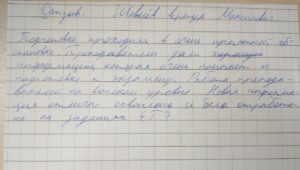 Отзыв: Шваёв Артур Маликович
Подготовка проходила в очень приятной об-
становке. Преподаватели дали хорошую
информацию, которая очень поможет в
подготовке к экзамену. Работа препода-
вателей на высоком уровне. Новая информа-
ция отлично освоилась и была отработа-
на на заданиях ЕГЭ